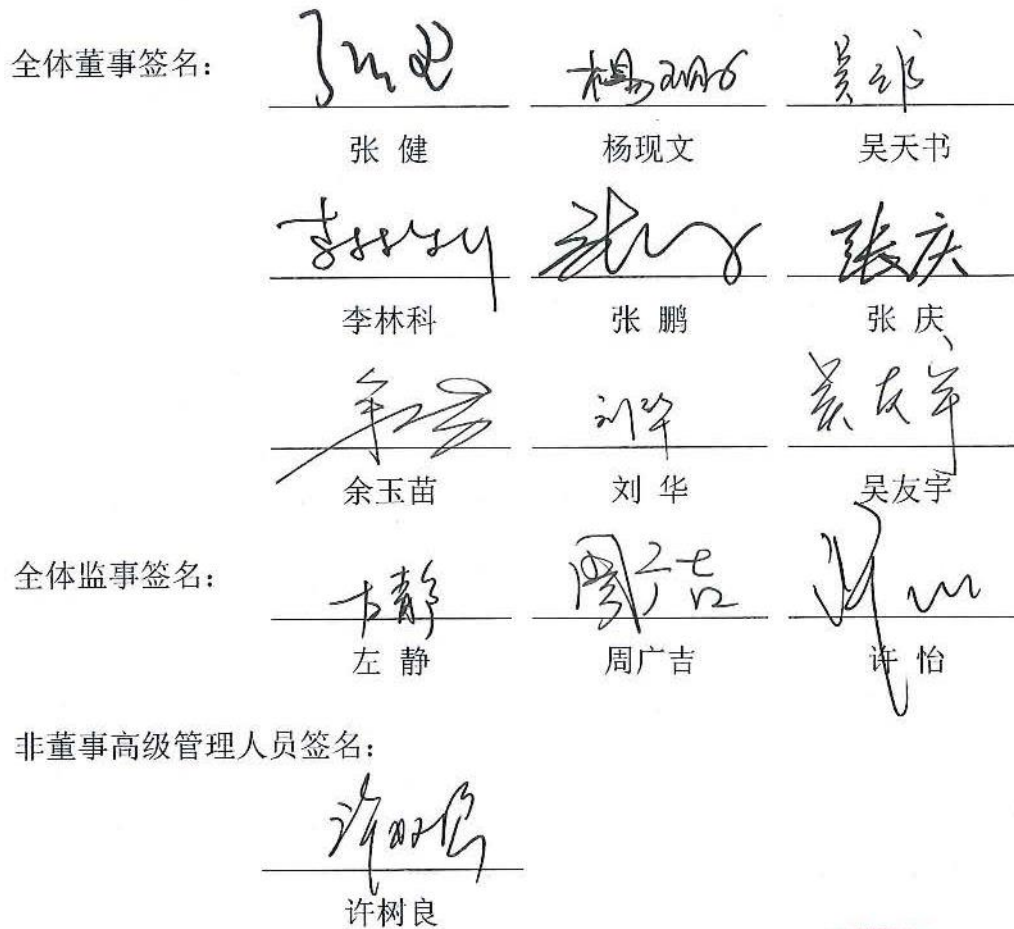 全体董事签名：
张 健 杨现文 吴天书
李林科 张 鹏 张 庆
余玉苗 刘 华 吴友宇
全体监事签名：
左 静 周广吉 许 怡
非董事高级管理人员签名：
许树良